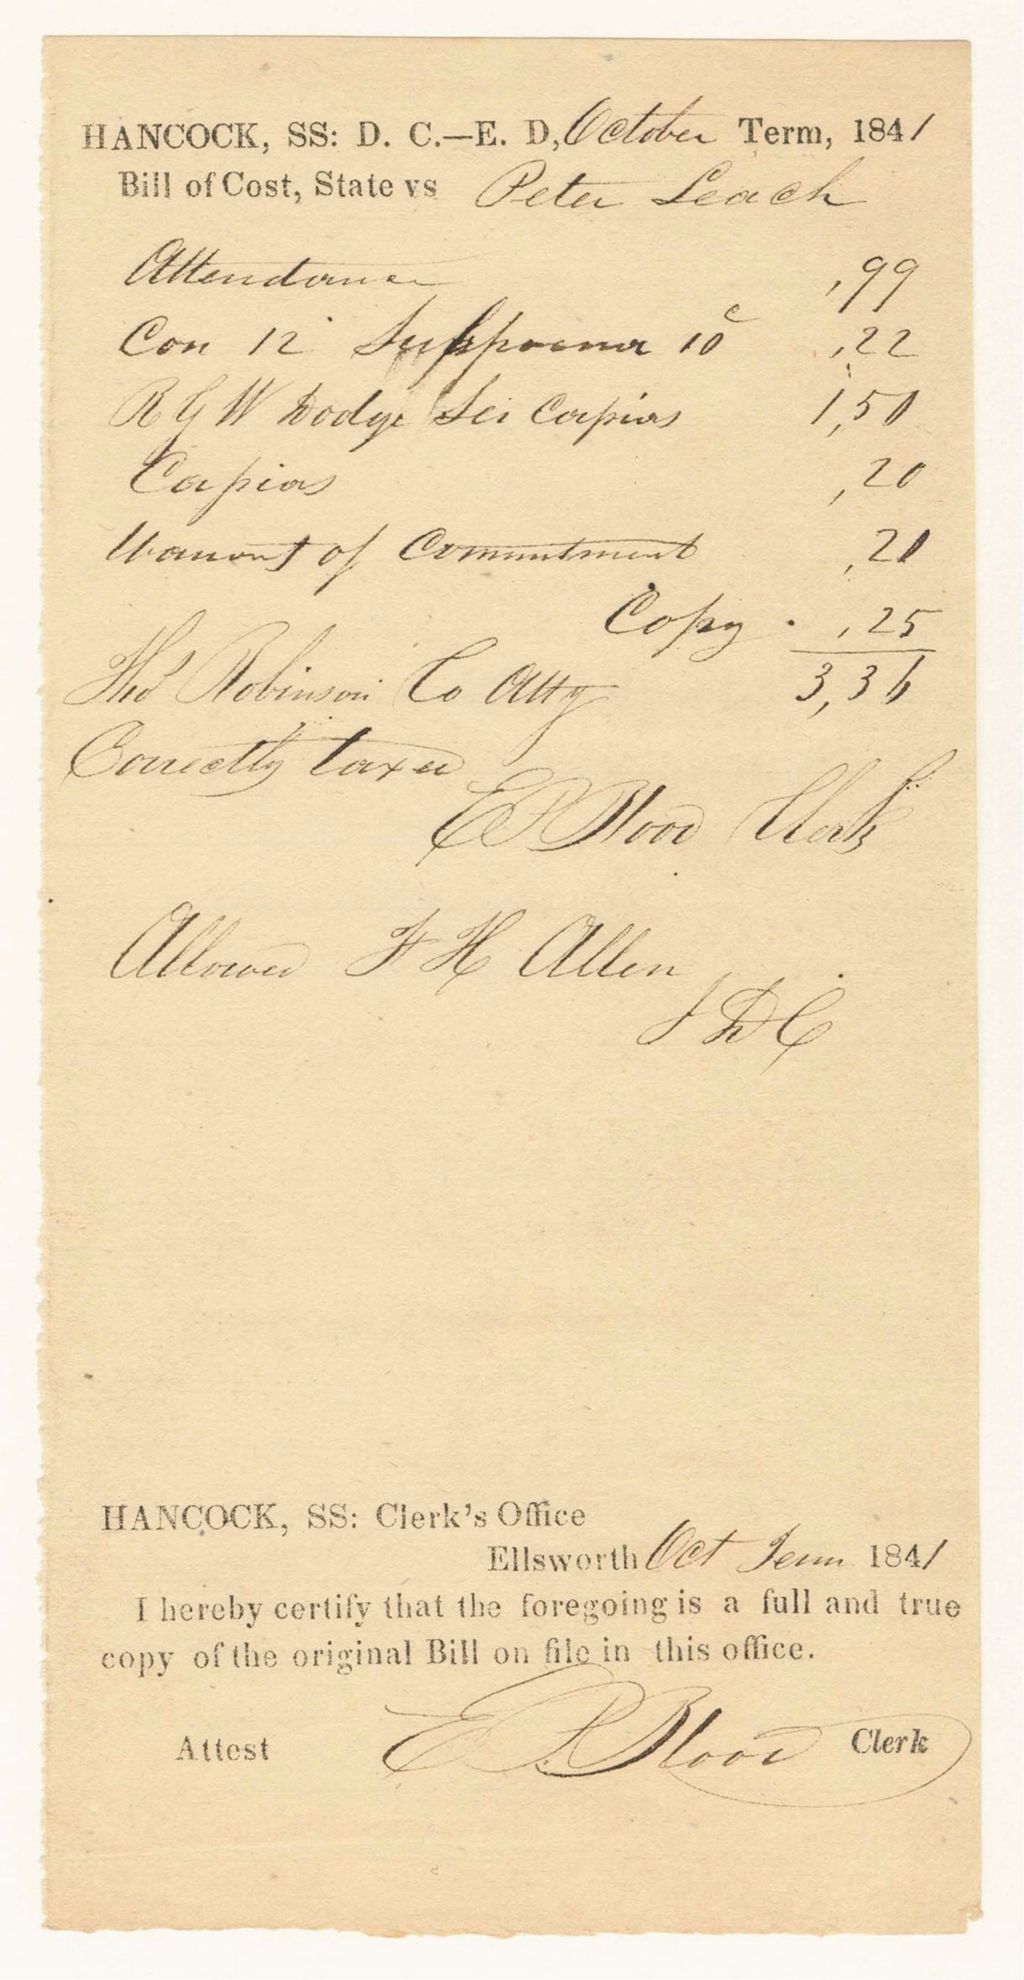 HANCOCK, SS: D. C.—E. D, October Term, 1841
Bill of Cost, State vs Peter Leach
Attendance ,99
Con 12 Subpoena 10c ,22
R G W Dodge Sci Capias 1,50
Capias ,20
Warrant of Commitment ,20
Copy . ,25
3,36
Thos Robinson Co Atty
Correctly taxed
E P Blood Clerk
Allowed F H Allen
J D C
HANCOCK, SS: Clerk's Office
Ellsworth Oct Term 1841
I hereby certify that the foregoing is a full and true
copy of the original Bill on file in this office.
Attest E P Blood Clerk